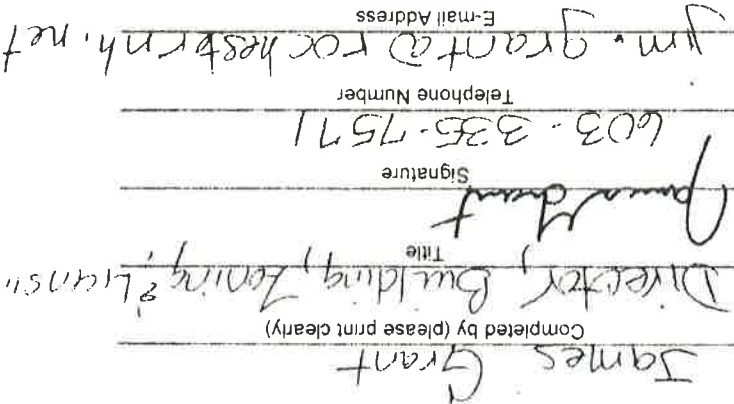 James Grant
Completed by (please print clearly)
Director, Building, Zoning,
Title
James Grant
Signature
603-335-7571
Telephone Number
jim.grant@rochesternh.net
E-mail Address